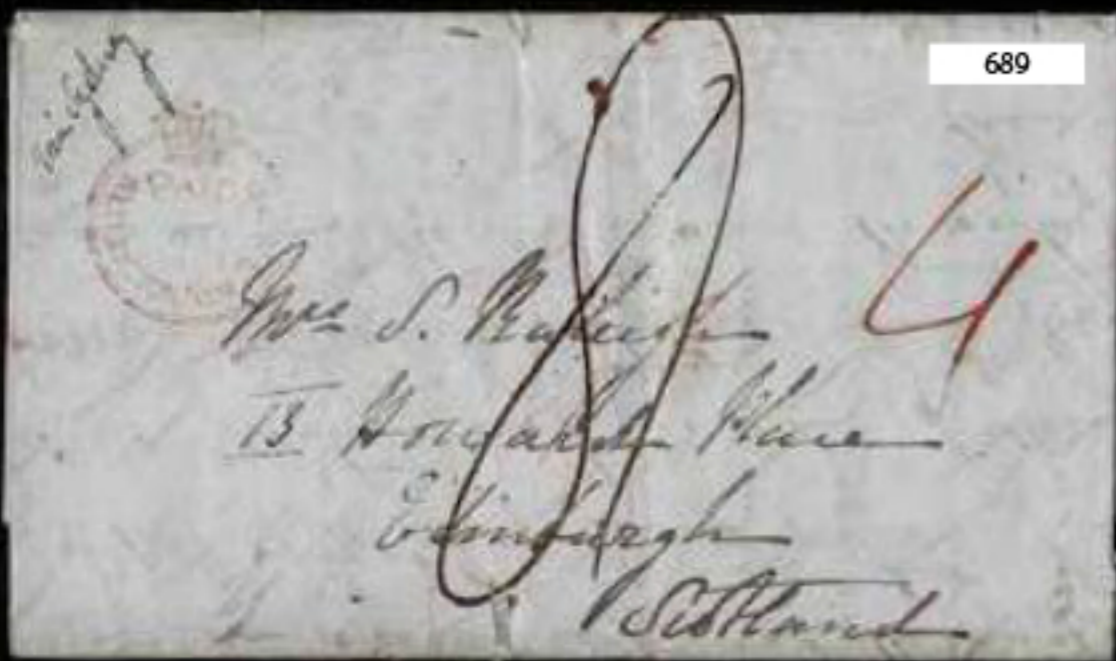 689
via Sydney
PAID
8
4
Mrs S. Raleigh
13 Howard Place
Edinburgh
Scotland